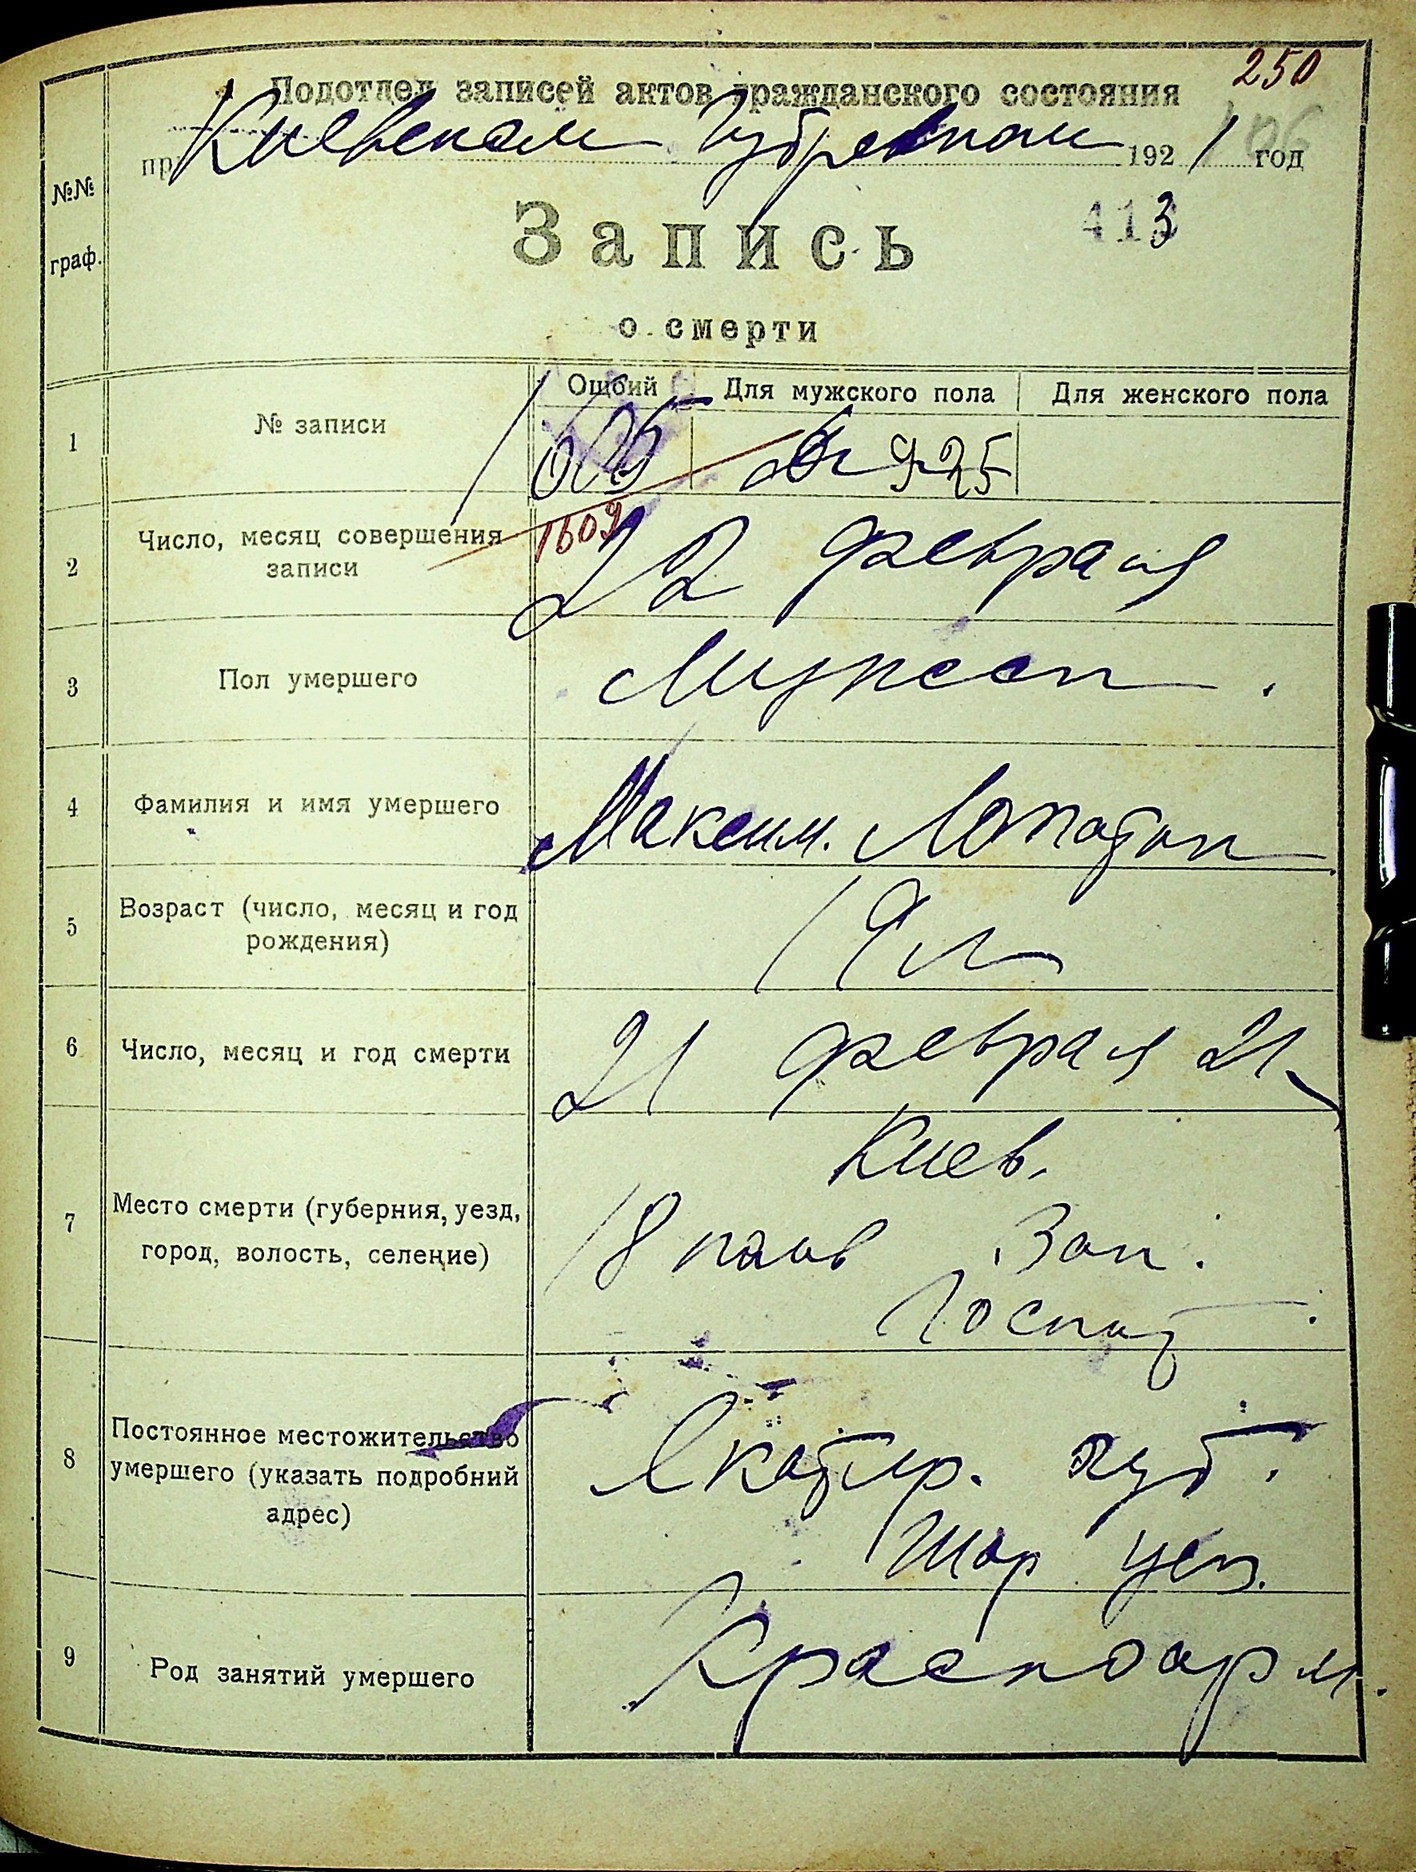 250
Подотдел записей актов гражданского состояния
при Киевском Губревком 1921 год
413
№№ граф.
Запись
о смерти
Ощбий Для мужского пола Для женского пола
1 № записи 925
1609
2 Число, месяц совершения записи 22 февраля
3 Пол умершего Мужск.
4 Фамилия и имя умершего Максим. Лопатон
5 Возраст (число, месяц и год рождения) 19 л
6 Число, месяц и год смерти 21 февраля 21
7 Место смерти (губерния, уезд, город, волость, селение) Киев.
18 Зап.
Госпит
8 Постоянное местожительство умершего (указать подробний адрес) губ.
уез.
9 Род занятий умершего Красноарм.